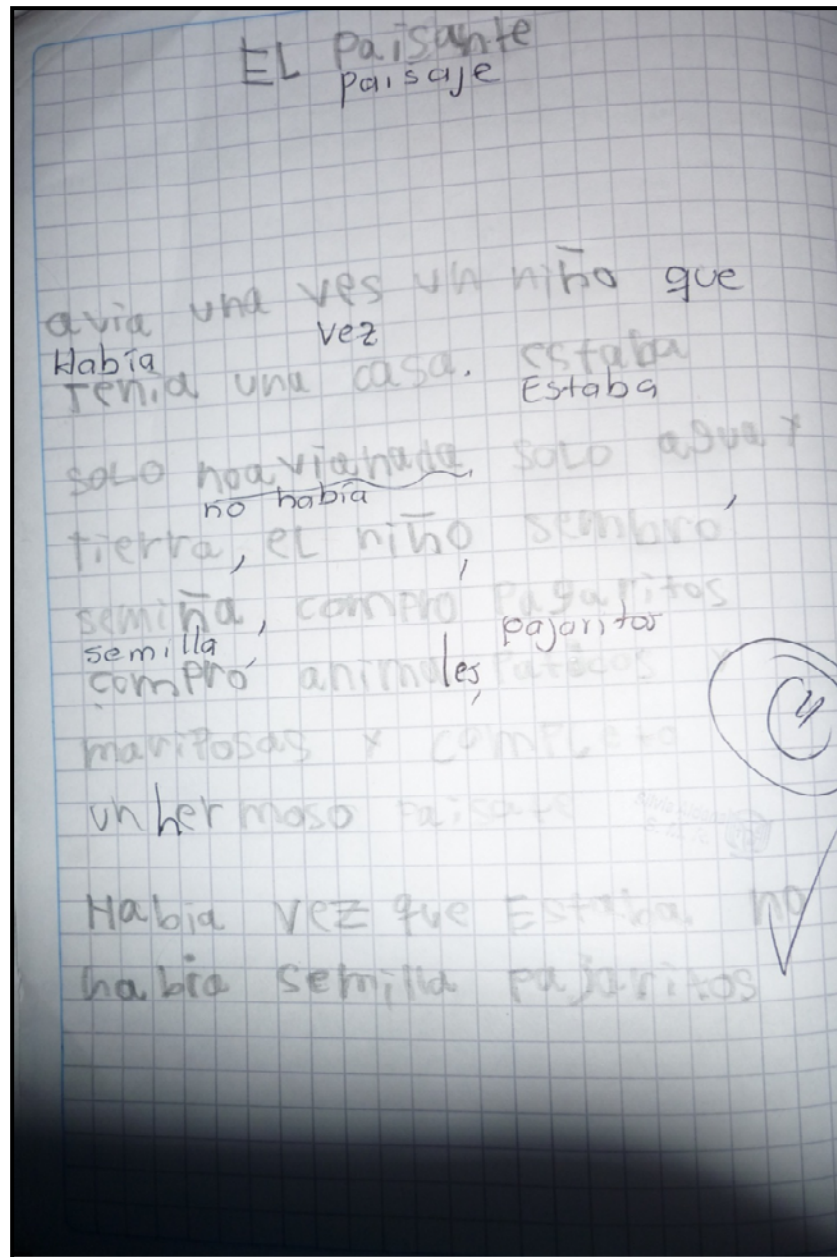 EL paisante
paisaje
avia una ves un niño que
Había vez
tenia una casa. estaba
Estaba
solo noavianada solo agua y
no había
tierra, el niño sembró,
semiña, compró, pagaritos
semilla pajaritos
compró animales, y
mariposas y completo
un hermoso paisate
Habia vez que Estaba no
habia semilla pajaritos